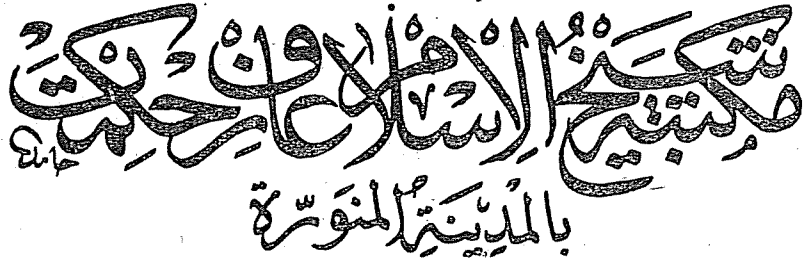 مكتبة شيخ الإسلام عارف حكمت
بالمدينة المنورة